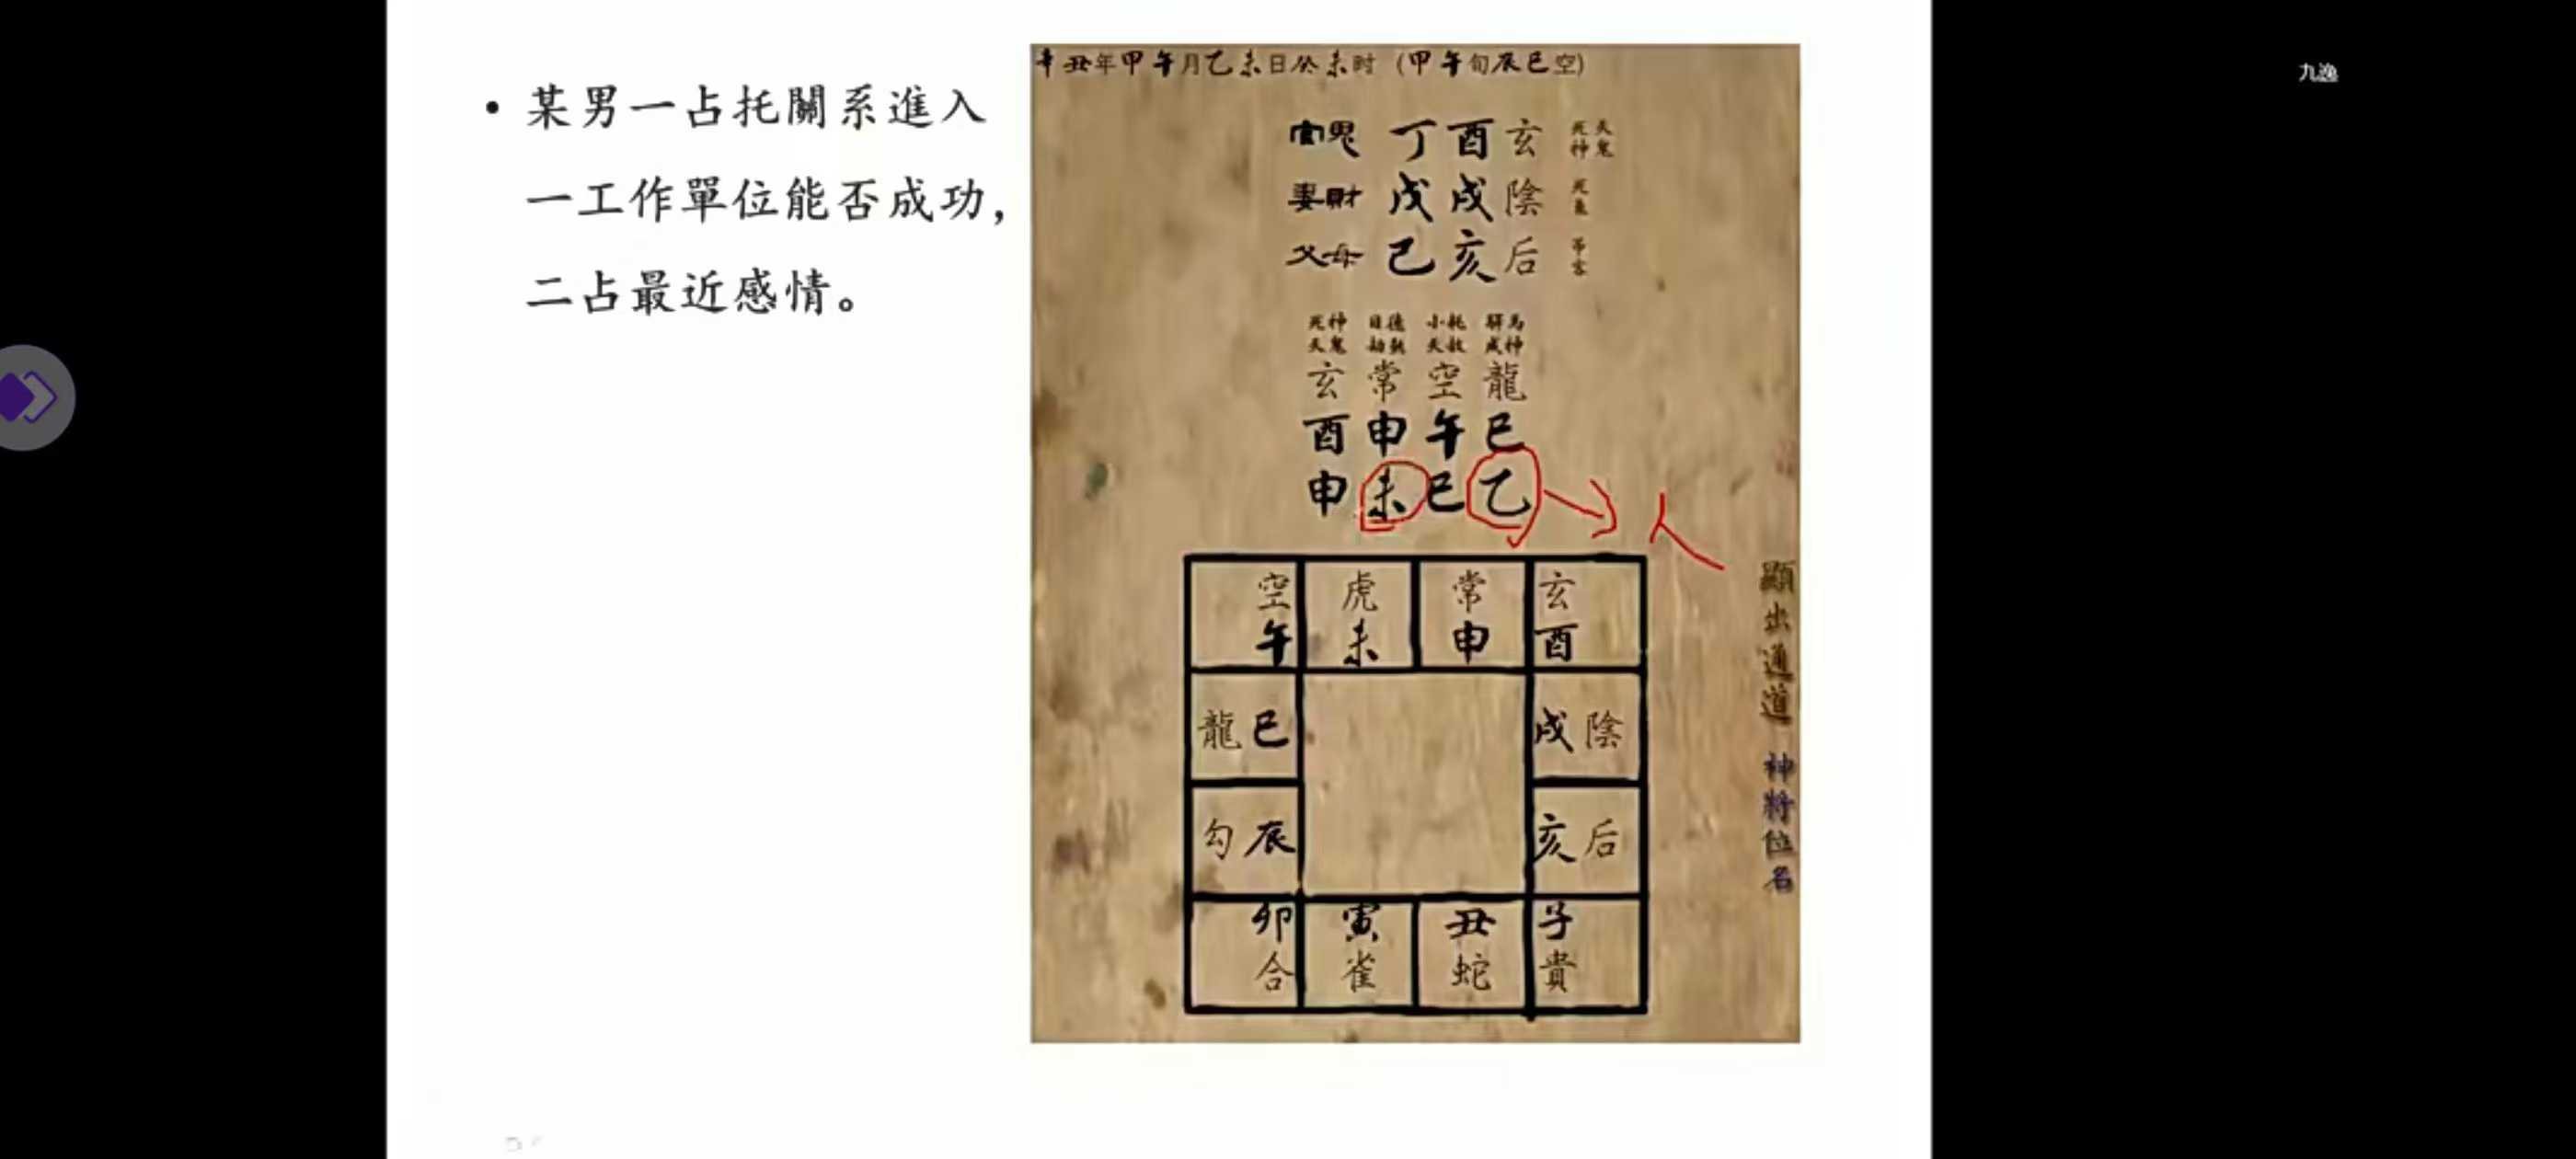 九逸
• 某男一占托關系進入
一工作單位能否成功，
二占最近感情。
辛丑年甲午月乙未日癸未时（甲午旬辰巳空）
官鬼 丁酉玄 死神 天鬼
妻財 戊戌陰 死氣
父母 己亥后 吊客
死神 日德 小耗 驛馬
天鬼 劫煞 天赦 成神
玄 常 空 龍
酉 申 午 巳
申 未 巳 乙
人
空 虎 常 玄
午 未 申 酉
龍 巳 戌 陰
勾 辰 亥 后
卯 寅 丑 子
合 雀 蛇 貴
顯出通道 神將位名